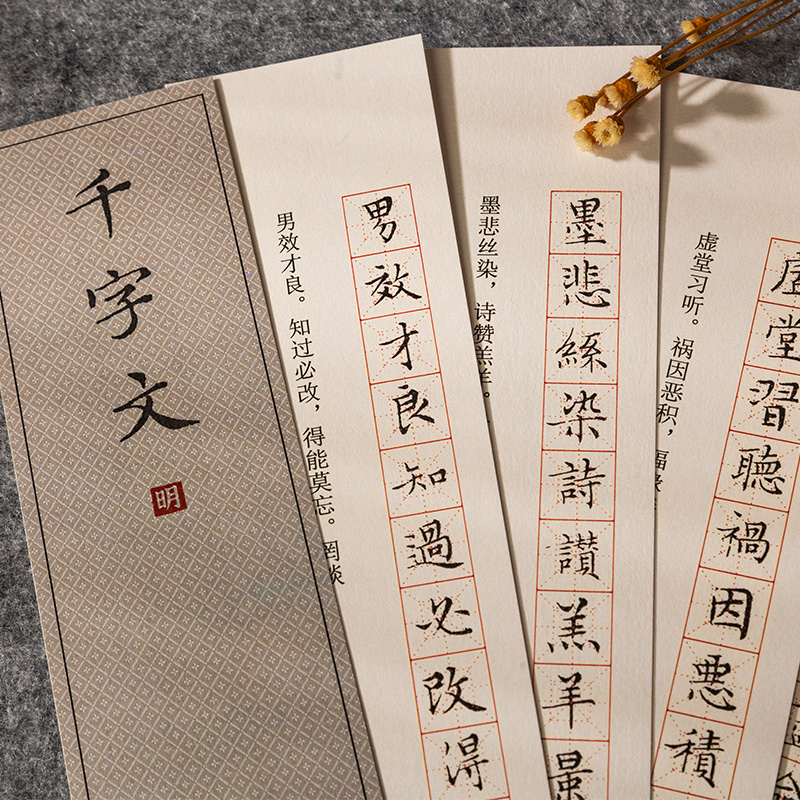 千字文
明
男效才良。知过必改，得能莫忘。罔谈
男效才良知過必改得
墨悲丝染，诗赞羔羊。
墨悲絲染詩讃羔羊景
虚堂习听。祸因恶积，福缘
虛堂習聽禍因悪積